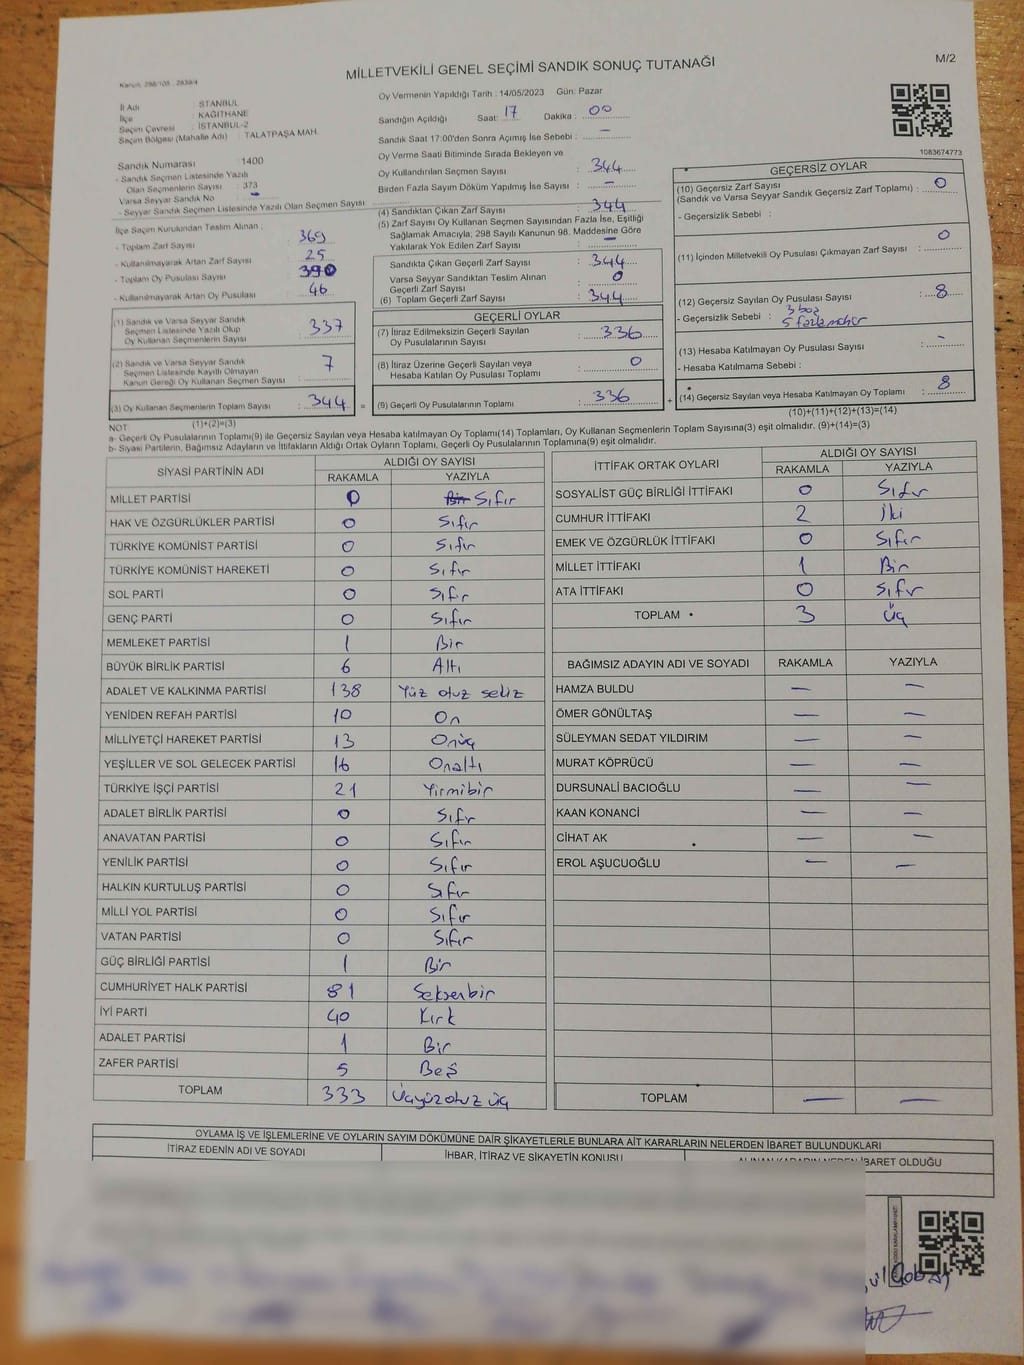 MİLLETVEKİLİ GENEL SEÇİMİ SANDIK SONUÇ TUTANAĞI
M/2
İl Adı : İSTANBUL
İlçe : KAĞITHANE
Seçim Çevresi : İSTANBUL-2
Seçim Bölgesi (Mahalle Adı) : TALATPAŞA MAH.
Sandık Numarası : 1400
- Sandık Seçmen Listesinde Yazılı
Olan Seçmenlerin Sayısı : 373
Varsa Seyyar Sandık No : -
- Seyyar Sandık Seçmen Listesinde Yazılı Olan Seçmen Sayısı
İlçe Seçim Kurulundan Teslim Alınan :
- Toplam Zarf Sayısı : 369
- Kullanılmayarak Artan Zarf Sayısı : 25
- Toplam Oy Pusulası Sayısı : 390
- Kullanılmayarak Artan Oy Pusulası : 46
(1) Sandık ve Varsa Seyyar Sandık
Seçmen Listesinde Yazılı Olup
Oy Kullanan Seçmenlerin Sayısı : 337
(2) Sandık ve Varsa Seyyar Sandık
Seçmen Listesinde Kayıtlı Olmayan
Kanun Gereği Oy Kullanan Seçmen Sayısı : 7
(3) Oy Kullanan Seçmenlerin Toplam Sayısı : 344 =
(1)+(2)=(3)
Oy Vermenin Yapıldığı Tarih : 14/05/2023 Gün: Pazar
Sandığın Açıldığı Saat: 17 Dakika : 00
Sandık Saat 17:00'den Sonra Açılmış İse Sebebi : -
Oy Verme Saati Bitiminde Sırada Bekleyen ve
Oy Kullandırılan Seçmen Sayısı : 344
Birden Fazla Sayım Döküm Yapılmış İse Sayısı : -
(4) Sandıktan Çıkan Zarf Sayısı : 344
(5) Zarf Sayısı Oy Kullanan Seçmen Sayısından Fazla İse, Eşitliği
Sağlamak Amacıyla; 298 Sayılı Kanunun 98. Maddesine Göre
Yakılarak Yok Edilen Zarf Sayısı : -
Sandıkta Çıkan Geçerli Zarf Sayısı : 344
Varsa Seyyar Sandıktan Teslim Alınan
Geçerli Zarf Sayısı : 0
(6) Toplam Geçerli Zarf Sayısı : 344
GEÇERLİ OYLAR
(7) İtiraz Edilmeksizin Geçerli Sayılan
Oy Pusulalarının Sayısı : 336
(8) İtiraz Üzerine Geçerli Sayılan veya
Hesaba Katılan Oy Pusulası Toplamı : 0
(9) Geçerli Oy Pusulalarının Toplamı : 336 +
1083674773
GEÇERSİZ OYLAR
(10) Geçersiz Zarf Sayısı
(Sandık ve Varsa Seyyar Sandık Geçersiz Zarf Toplamı) : 0
- Geçersizlik Sebebi :
(11) İçinden Milletvekili Oy Pusulası Çıkmayan Zarf Sayısı : 0
(12) Geçersiz Sayılan Oy Pusulası Sayısı : 8
- Geçersizlik Sebebi : 3 boş
5 fazla mühür
(13) Hesaba Katılmayan Oy Pusulası Sayısı : -
- Hesaba Katılmama Sebebi :
(14) Geçersiz Sayılan veya Hesaba Katılmayan Oy Toplamı : 8
(10)+(11)+(12)+(13)=(14)
NOT
a- Geçerli Oy Pusulalarının Toplamı(9) ile Geçersiz Sayılan veya Hesaba katılmayan Oy Toplamı(14) Toplamları, Oy Kullanan Seçmenlerin Toplam Sayısına(3) eşit olmalıdır. (9)+(14)=(3)
b- Siyasi Partilerin, Bağımsız Adayların ve İttifakların Aldığı Ortak Oyların Toplamı, Geçerli Oy Pusulalarının Toplamına(9) eşit olmalıdır.
SİYASİ PARTİNİN ADI ALDIĞI OY SAYISI
RAKAMLA YAZIYLA
MİLLET PARTİSİ 0 Bir Sıfır
HAK VE ÖZGÜRLÜKLER PARTİSİ 0 Sıfır
TÜRKİYE KOMÜNİST PARTİSİ 0 Sıfır
TÜRKİYE KOMÜNİST HAREKETİ 0 Sıfır
SOL PARTİ 0 Sıfır
GENÇ PARTİ 0 Sıfır
MEMLEKET PARTİSİ 1 Bir
BÜYÜK BİRLİK PARTİSİ 6 Altı
ADALET VE KALKINMA PARTİSİ 138 Yüz otuz sekiz
YENİDEN REFAH PARTİSİ 10 On
MİLLİYETÇİ HAREKET PARTİSİ 13 Onüç
YEŞİLLER VE SOL GELECEK PARTİSİ 16 Onaltı
TÜRKİYE İŞÇİ PARTİSİ 21 Yirmibir
ADALET BİRLİK PARTİSİ 0 Sıfır
ANAVATAN PARTİSİ 0 Sıfır
YENİLİK PARTİSİ 0 Sıfır
HALKIN KURTULUŞ PARTİSİ 0 Sıfır
MİLLİ YOL PARTİSİ 0 Sıfır
VATAN PARTİSİ 0 Sıfır
GÜÇ BİRLİĞİ PARTİSİ 1 Bir
CUMHURİYET HALK PARTİSİ 81 Seksenbir
İYİ PARTİ 40 Kırk
ADALET PARTİSİ 1 Bir
ZAFER PARTİSİ 5 Beş
TOPLAM 333 Üçyüz otuz üç
İTTİFAK ORTAK OYLARI ALDIĞI OY SAYISI
RAKAMLA YAZIYLA
SOSYALİST GÜÇ BİRLİĞİ İTTİFAKI 0 Sıfır
CUMHUR İTTİFAKI 2 İki
EMEK VE ÖZGÜRLÜK İTTİFAKI 0 Sıfır
MİLLET İTTİFAKI 1 Bir
ATA İTTİFAKI 0 Sıfır
TOPLAM 3 Üç
BAĞIMSIZ ADAYIN ADI VE SOYADI RAKAMLA YAZIYLA
HAMZA BULDU - -
ÖMER GÖNÜLTAŞ - -
SÜLEYMAN SEDAT YILDIRIM - -
MURAT KÖPRÜCÜ - -
DURSUNALİ BACIOĞLU - -
KAAN KONANCİ - -
CİHAT AK - -
EROL AŞUCUOĞLU - -
TOPLAM - -
OYLAMA İŞ VE İŞLEMLERİNE VE OYLARIN SAYIM DÖKÜMÜNE DAİR ŞİKAYETLERLE BUNLARA AİT KARARLARIN NELERDEN İBARET BULUNDUKLARI
İTİRAZ EDENİN ADI VE SOYADI
İHBAR, İTİRAZ VE ŞİKAYETİN KONUSU
ALINAN KARARIN NEDEN İBARET OLDUĞU